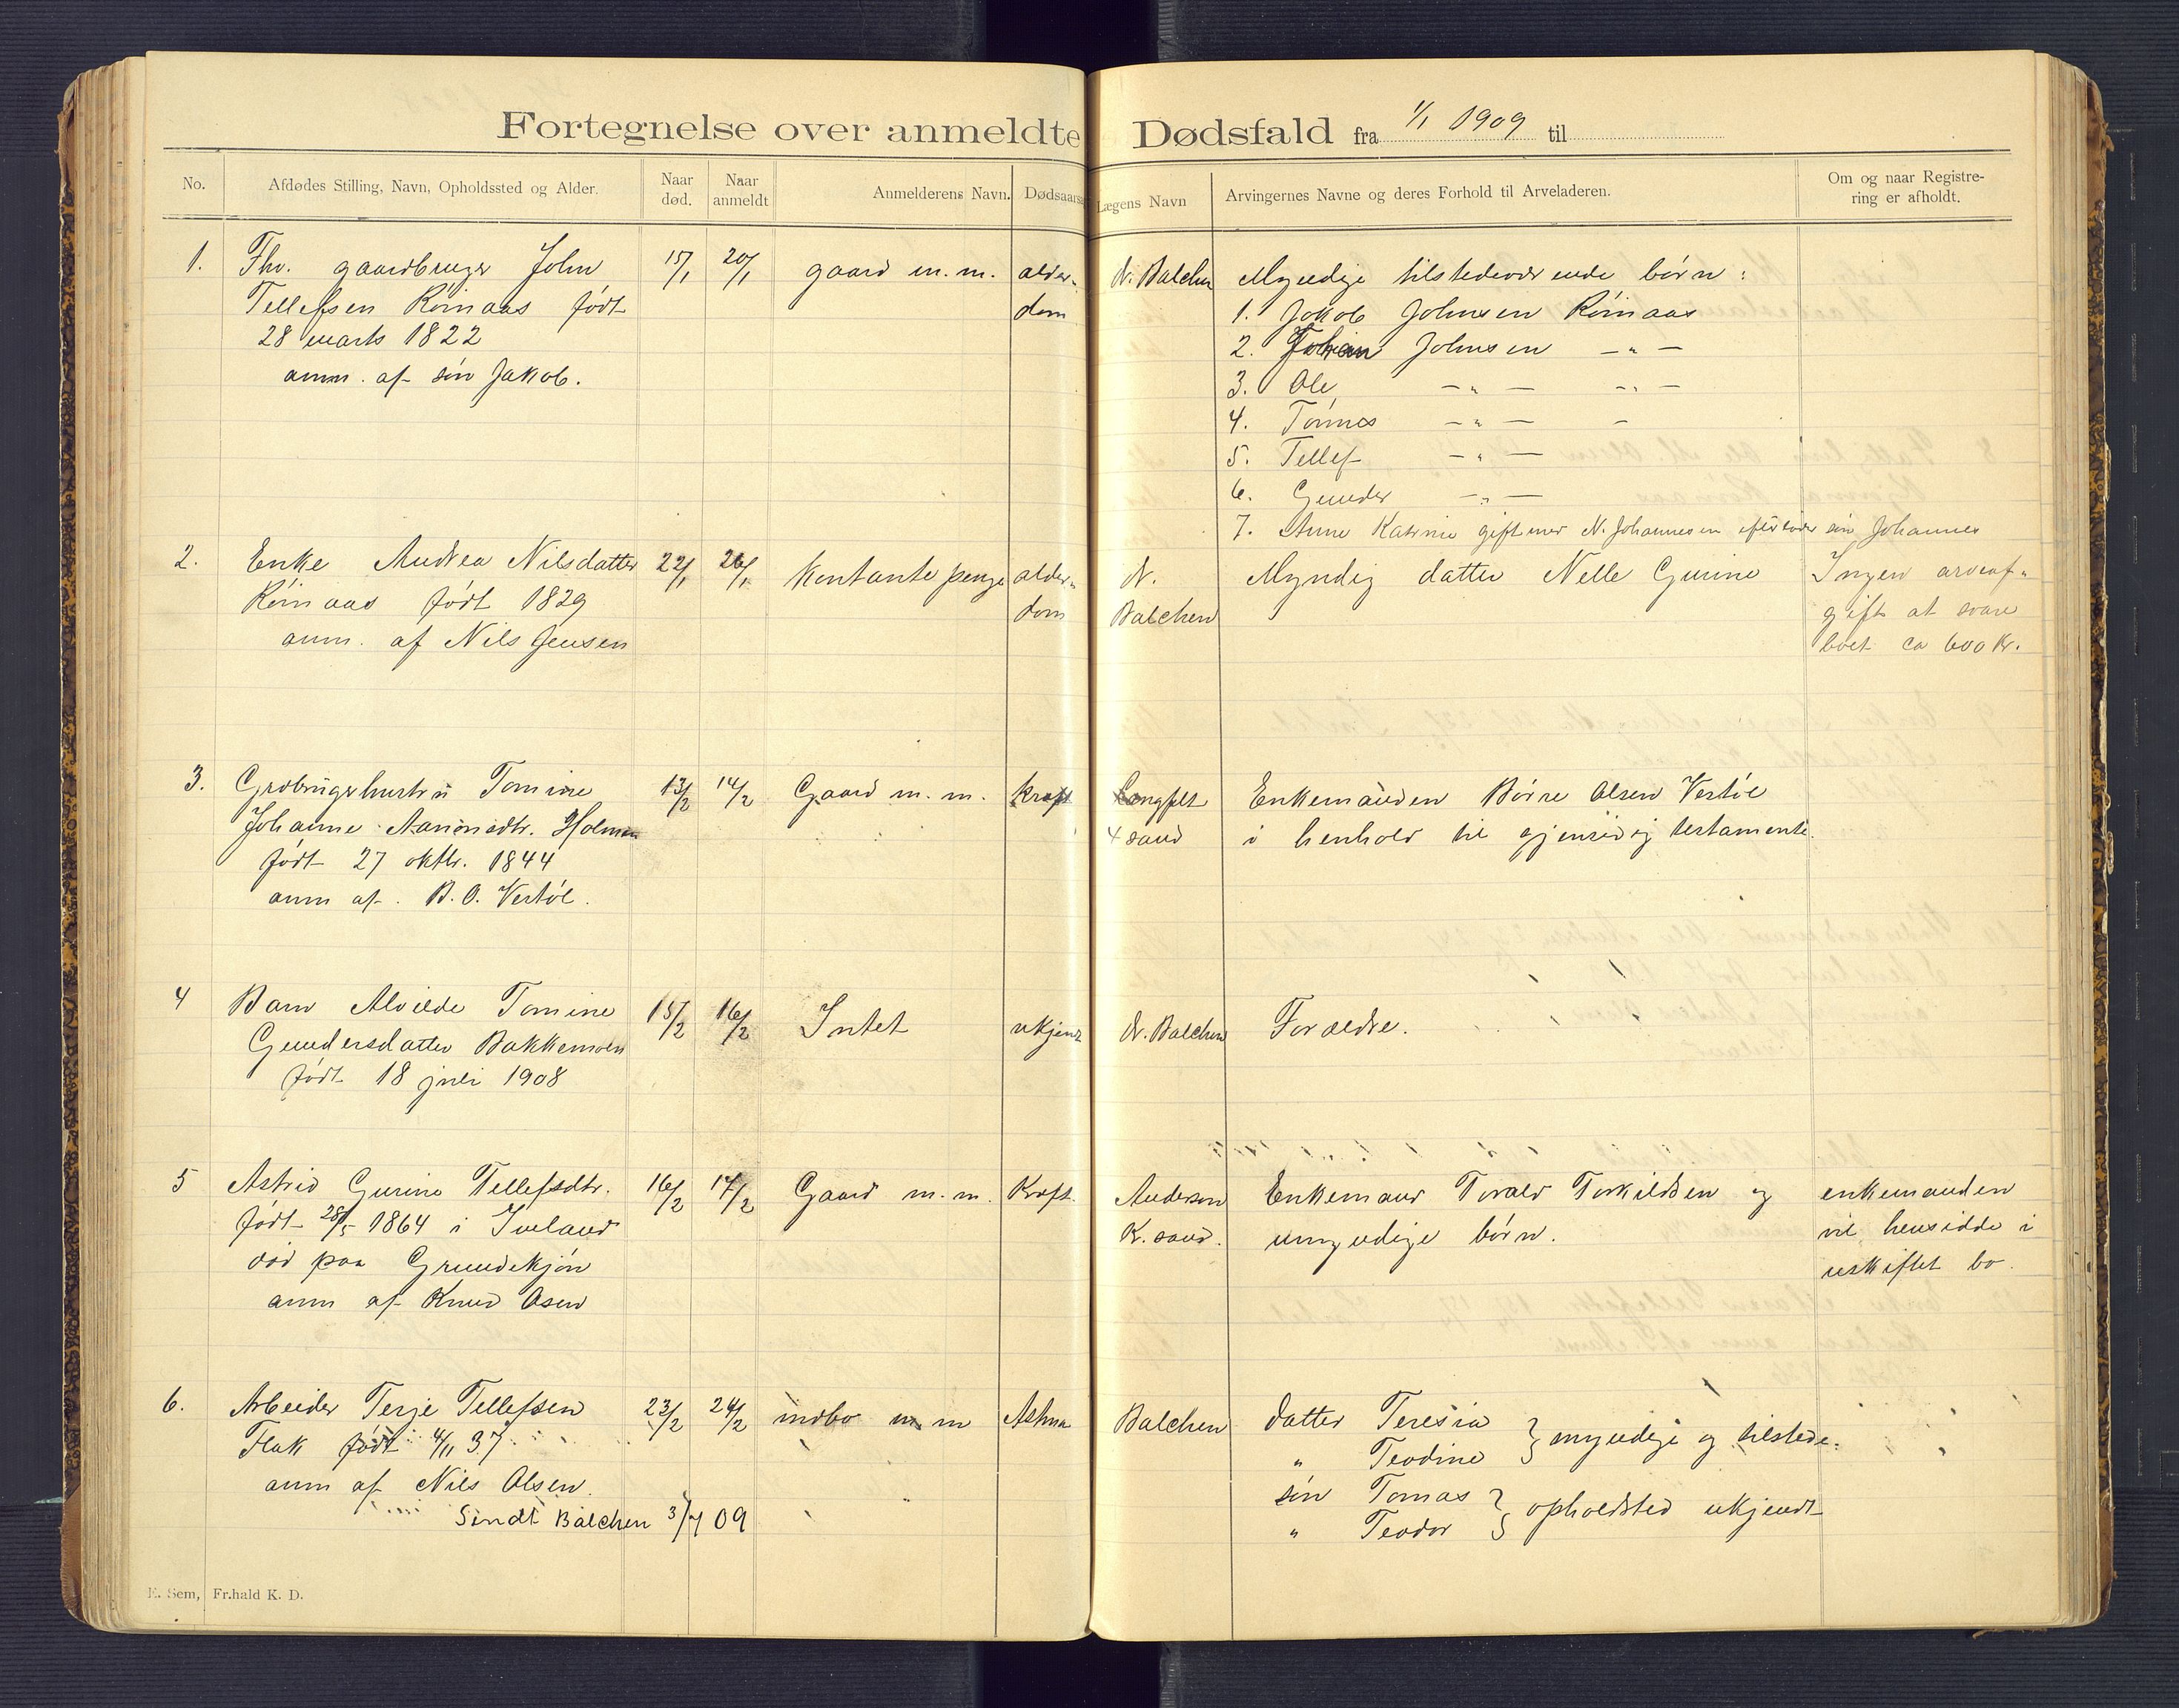 Fortegnelse over anmeldte Dødsfald fra 1/1 1909 til
No.
Afdødes Stilling, Navn, Opholdssted og Alder.
Naar død.
Naar anmeldt
Anmelderens Navn.
Dødsaarsa
Lægens Navn
Arvingernes Navne og deres Forhold til Arveladeren.
Om og naar Registre-
ring er afholdt.
1. Fhv. gaardbruger John 15/1 20/1 gaard m.m. alder-
Tellefsen Röinaas født dom
28 marts 1822
anm. af sön Jakob.
dr. Balchen Myndige tilstedeværende börn:
1. Jakob Johnsen Röinaas
2. Johan Johnsen — " —
3. Ole — " — — " —
4. Tönnes — " — -
5. Tellef — " —
6. Gunder — " —
7. Anne Katrine gift med N. Johannesen efterlader sön Johannes
2. Enke Andrea Nilsdatter 22/1 26/1 Kontante penge alder-
Röinaas født 1829 dom
anm. af Nils Jensen
dr. Myndig datter Nelle Gurine Ingen arveaf-
Balchen gift at svare
boet ca 600 Kr.
3. Grdbrugerhustru Tomine 13/2 14/2 Gaard m.m. Kræft
Johanne Aanonsdtr. Holmen
født 27 oktbr. 1844
anm af. B. O. Vestöl.
Langfelt Enkemanden Börre Olsen Vestöl
Xsand i henhold til gjensidig testamente.
4 Barn Alvilde Tomine 15/2 16/2 Intet ukjendt
Gundersdatter Bakkemoen
født 18 juli 1908
dr. Balchen Forældre.
5 Astrid Gurine Tellefsdtr. 16/2 17/2 Gaard m.m. Kræft.
født 28/5 1864 i Iveland
död paa Grundekjön
anm af Knud Osen
Anderson Enkemand Torald Torkildsen og enkemanden
K.sand. umyndige börn. vil hensidde i
uskiftet bo.
6. Arbeider Terje Tellefsen 23/2 24/2 indbo m m Astma
Flak født 4/11 37
anm af Nils Olsen.
Sendt Balchen 3/7 09
Balchen datter Teresia } myndige og tilstede.
" Teodine
sön Tomas } opholdsted ukjendt
" Teodor
E. Sem, Fr.hald K. D.